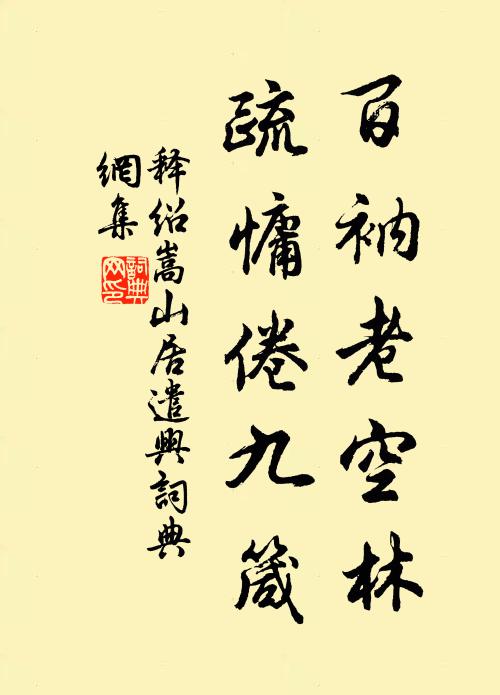 百衲老空林
疏慵倦九箴
释绍嵩山居遣興詞典
網集
詞典
网印